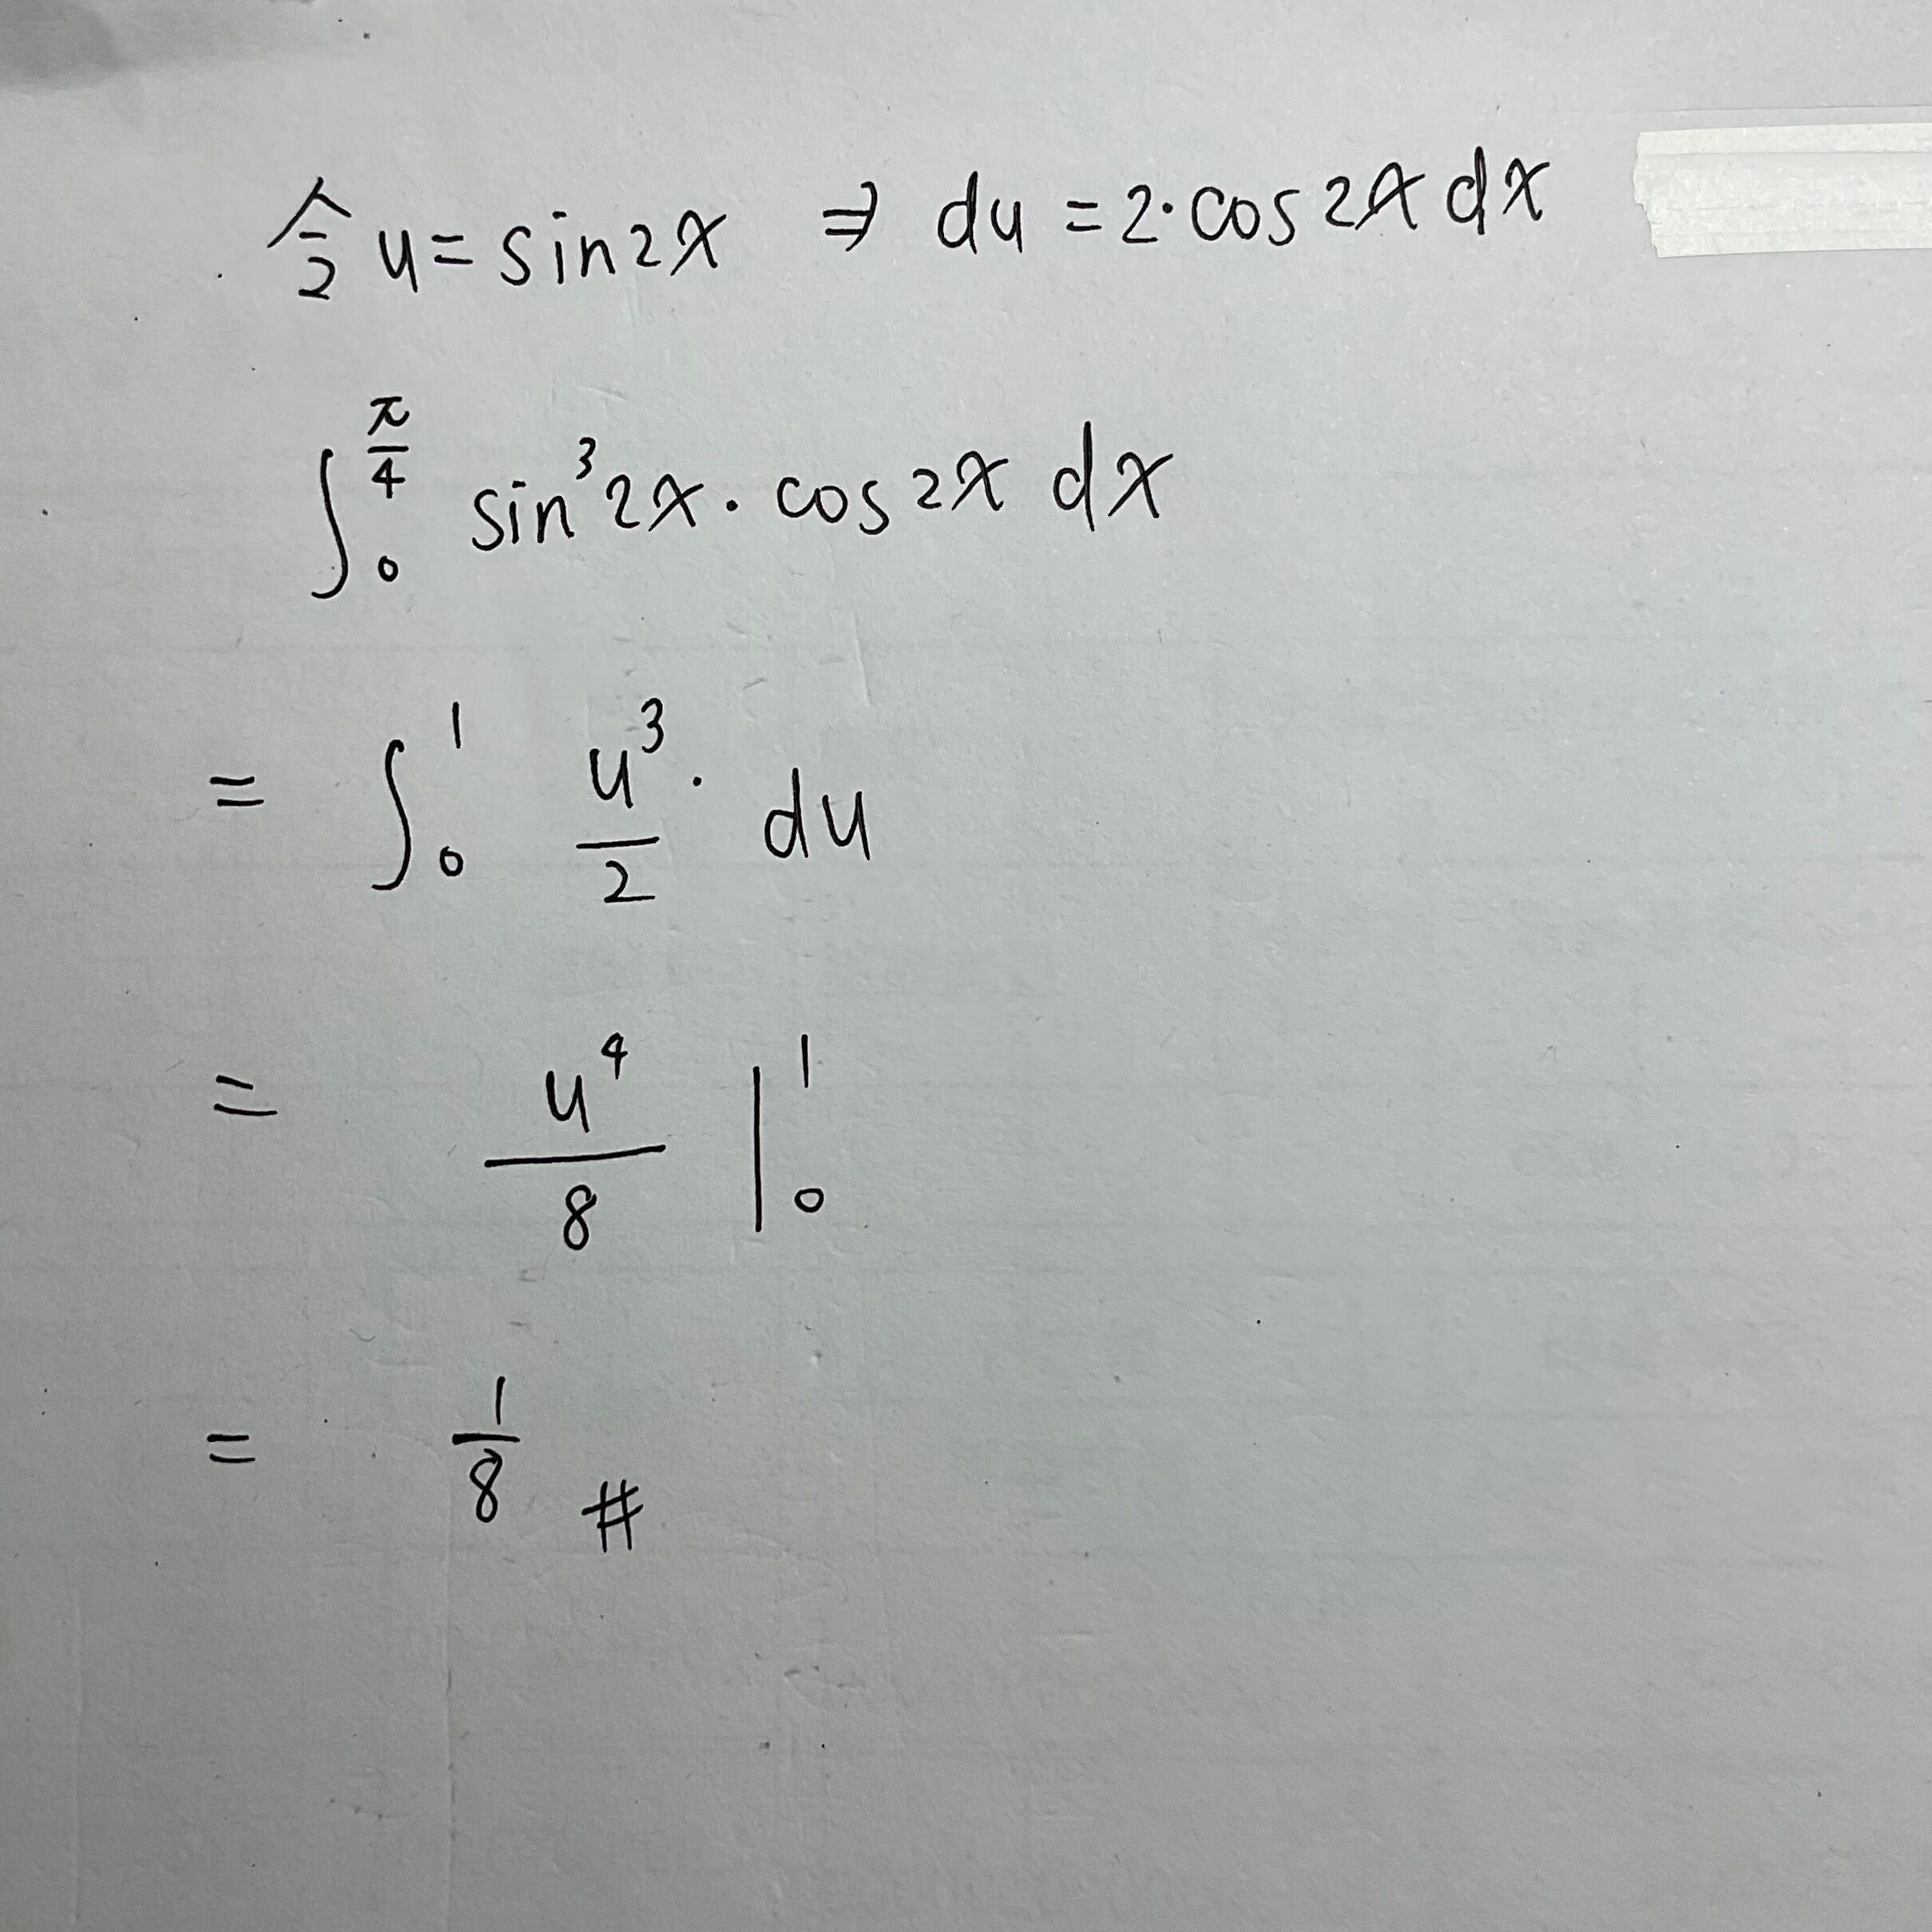 令 u = sin2x ⇒ du = 2·cos2x dx
∫_0^{π/4} sin³2x · cos2x dx
= ∫_0^1 u³/2 · du
= u⁴/8 |_0^1
= 1/8 #